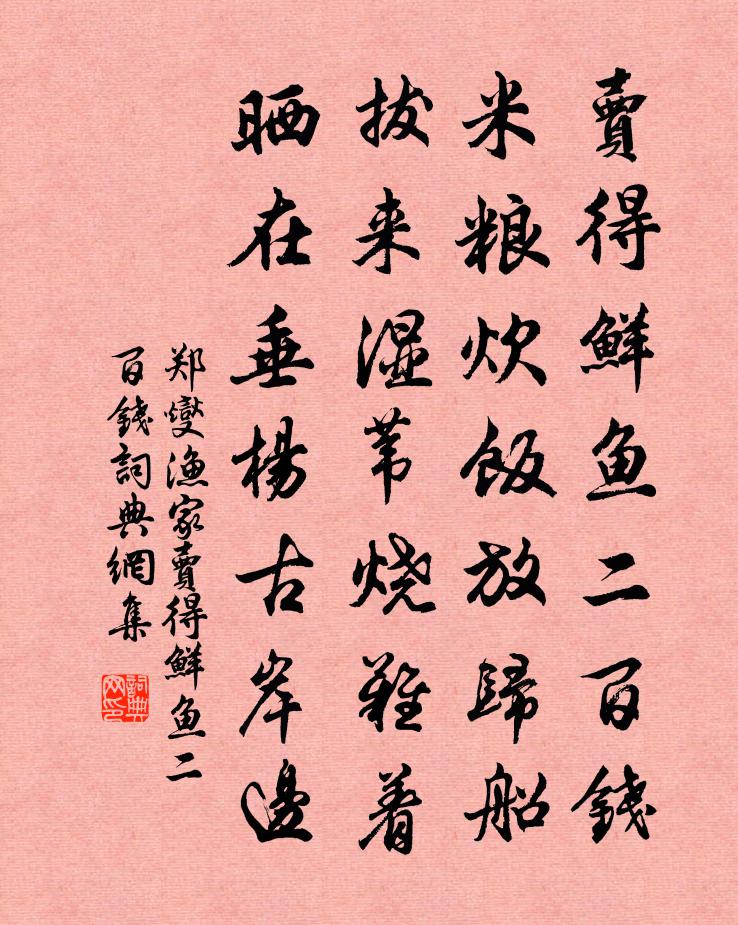 賣得鮮鱼二百錢
米粮炊飯放歸船
拔来湿苇烧難着
晒在垂楊古岸邊
郑燮渔家賣得鮮鱼二
百錢詞典網集
詞典
网印